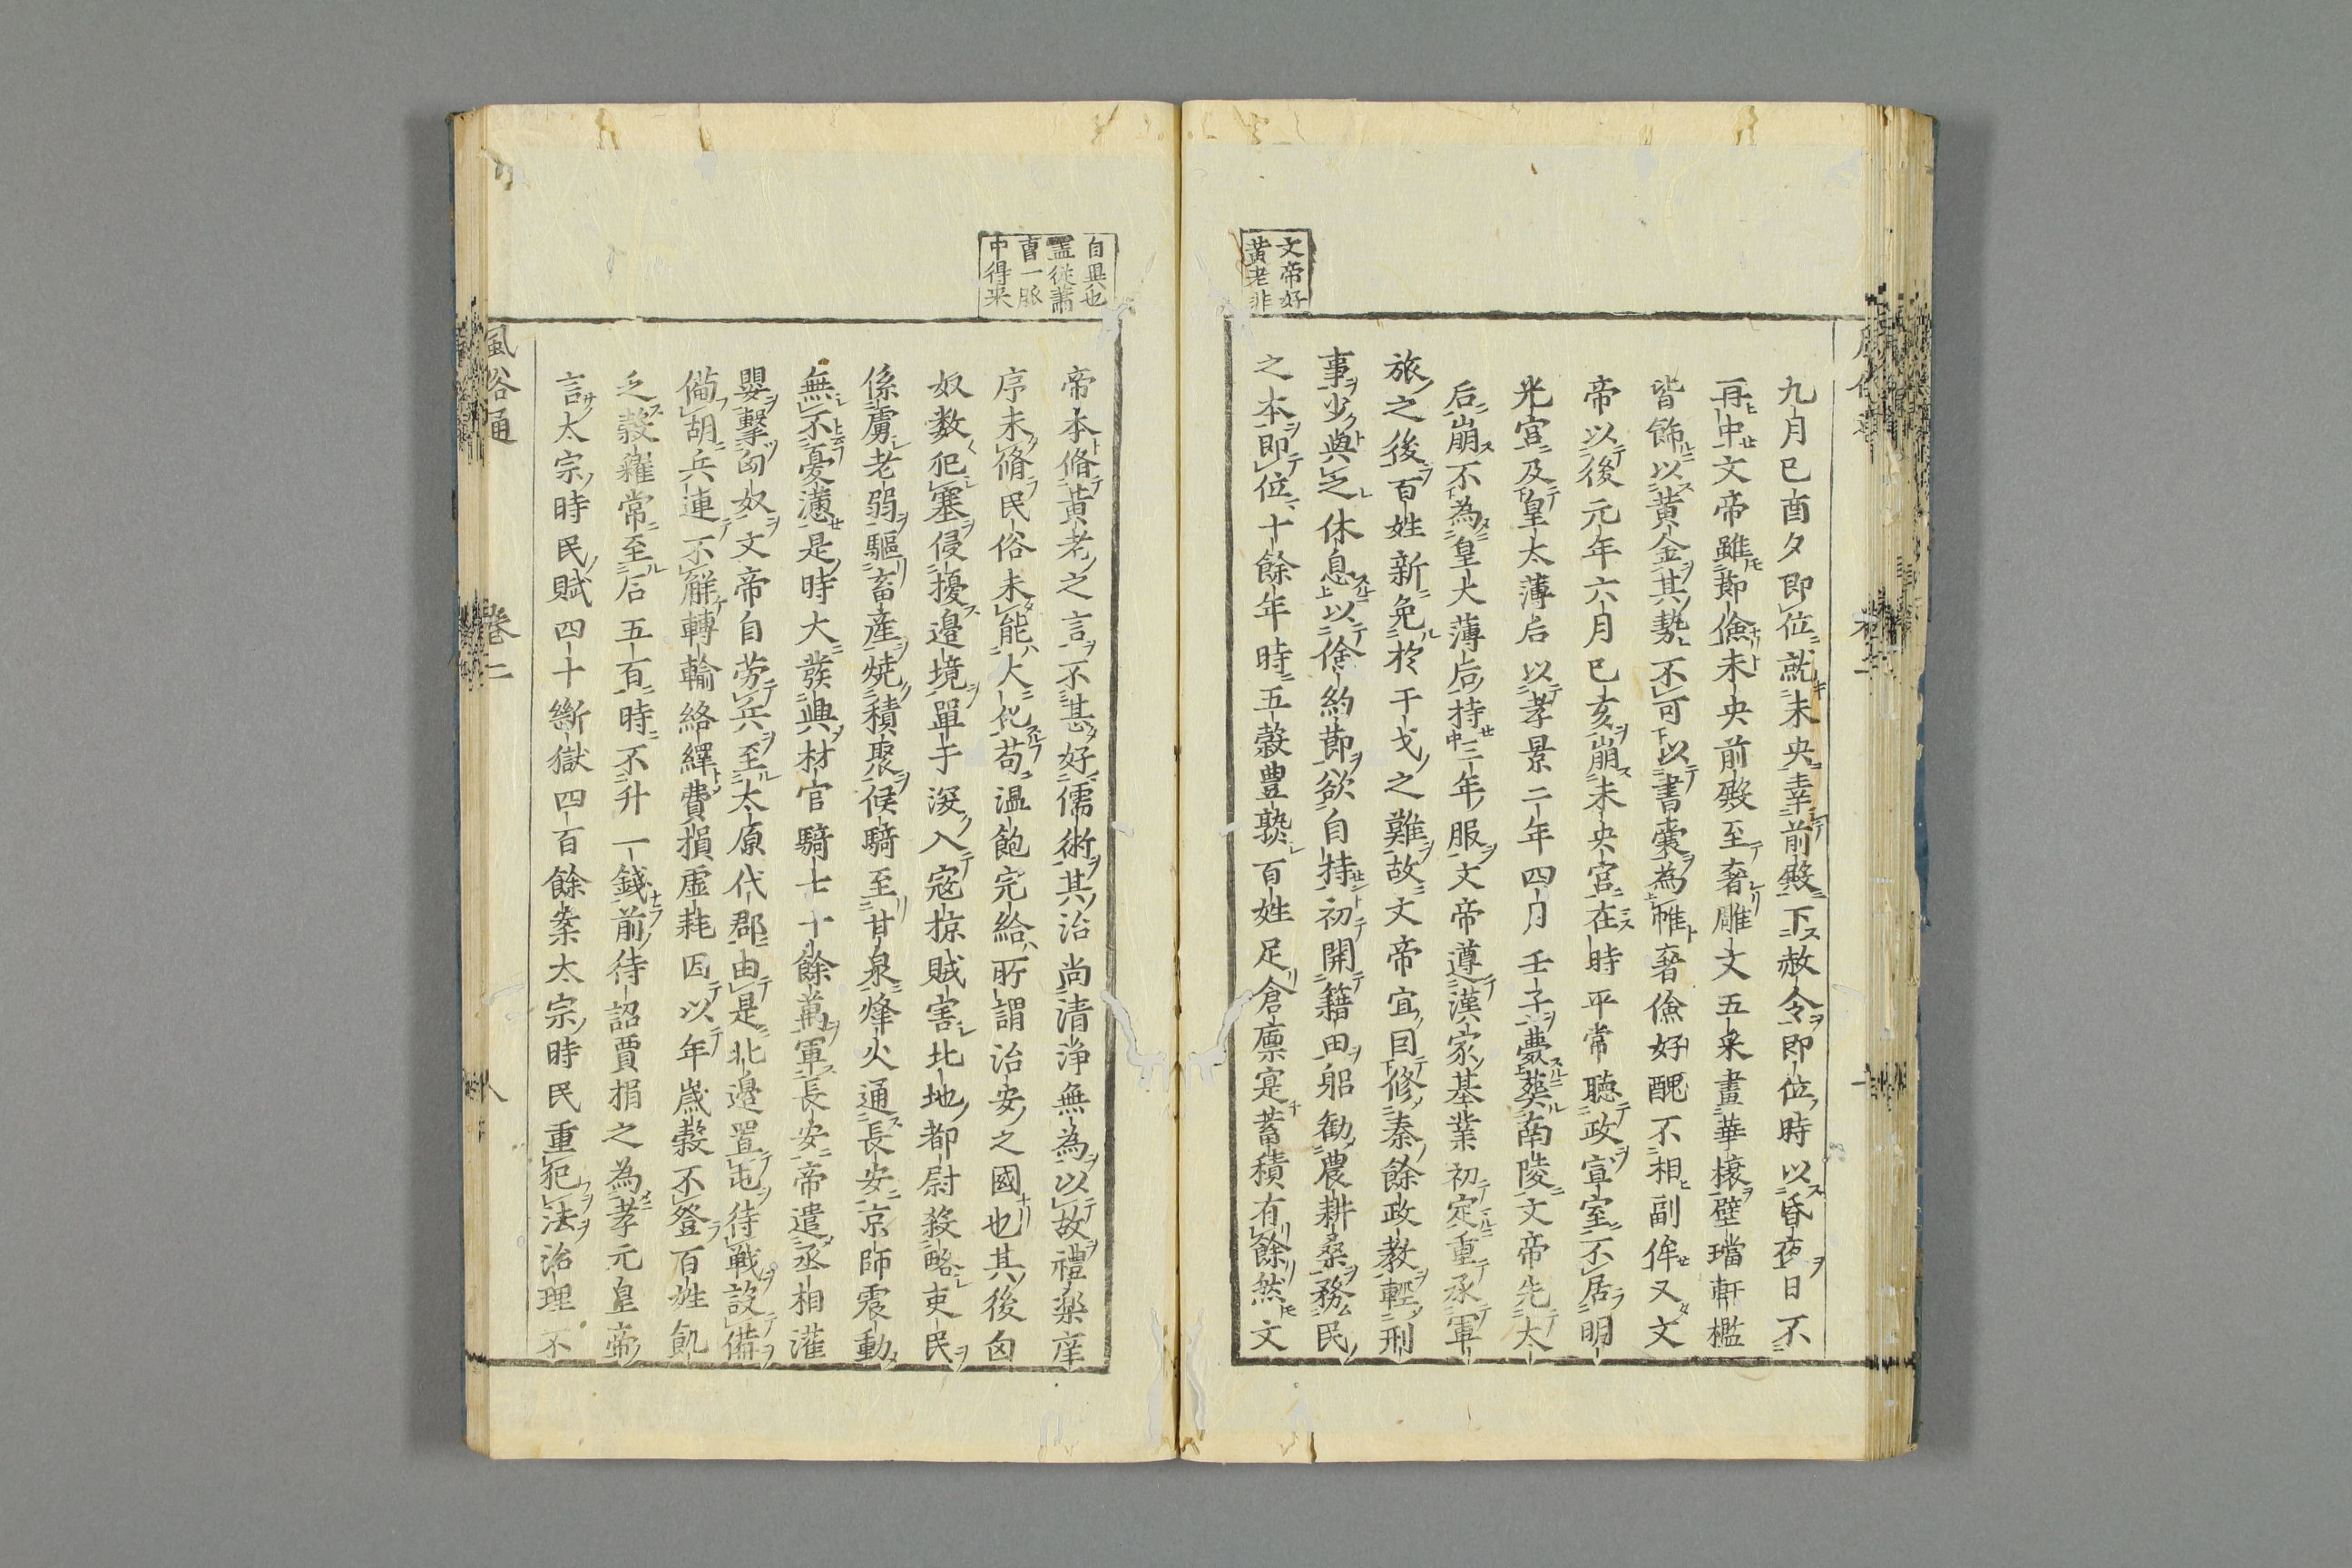 文帝好
黄老非
九月已酉夕即位就未央幸前殿下赦令即位時以昏夜日不
再中文帝雖節儉未央前殿至奢雕文五采畫華榱壁璫軒檻
皆飾以黄金其勢不可以書囊為帷奢儉好醜不相副侔又文
帝以後元年六月已亥崩未央宮在時平常聽政宣室不居明
光宮及皇太薄后以孝景二年四月壬子薨葬南陵文帝先太
后崩不為皇太薄后持三年服文帝遵漢家基業初定重承軍
旅之後百姓新免於干戈之難故文帝宜因修秦餘政教輕刑
事少與之休息以儉約節欲自持初開籍田躬勸農耕桑務民
之本即位十餘年時五穀豊熟百姓足倉廪寔蓄積有餘然文
自異也
盖從蕭
曹一脈
中得来
帝本脩黄老之言不甚好儒術其治尚清淨無為以故禮樂庠
序未脩民俗未能大化苟温飽完給所謂治安之國也其後匈
奴數犯塞侵擾邊境單于深入寇掠賊害北地都尉殺略吏民
係虜老弱驅畜産燒積聚候騎至甘泉烽火通長安京師震動
無不憂懣是時大發興材官騎士十餘萬軍長安帝遣丞相灌
嬰擊匈奴文帝自勞兵至太原代郡由是北邊置屯待戰設備
備胡兵連不解轉輸絡繹費損虚耗因以年歲穀不登百姓飢
乏穀糴常至石五百時不升一錢前待詔賈捐之為孝元皇帝
言太宗時民賦四十斷獄四百餘案太宗時民重犯法治理不
風俗通
卷二
八